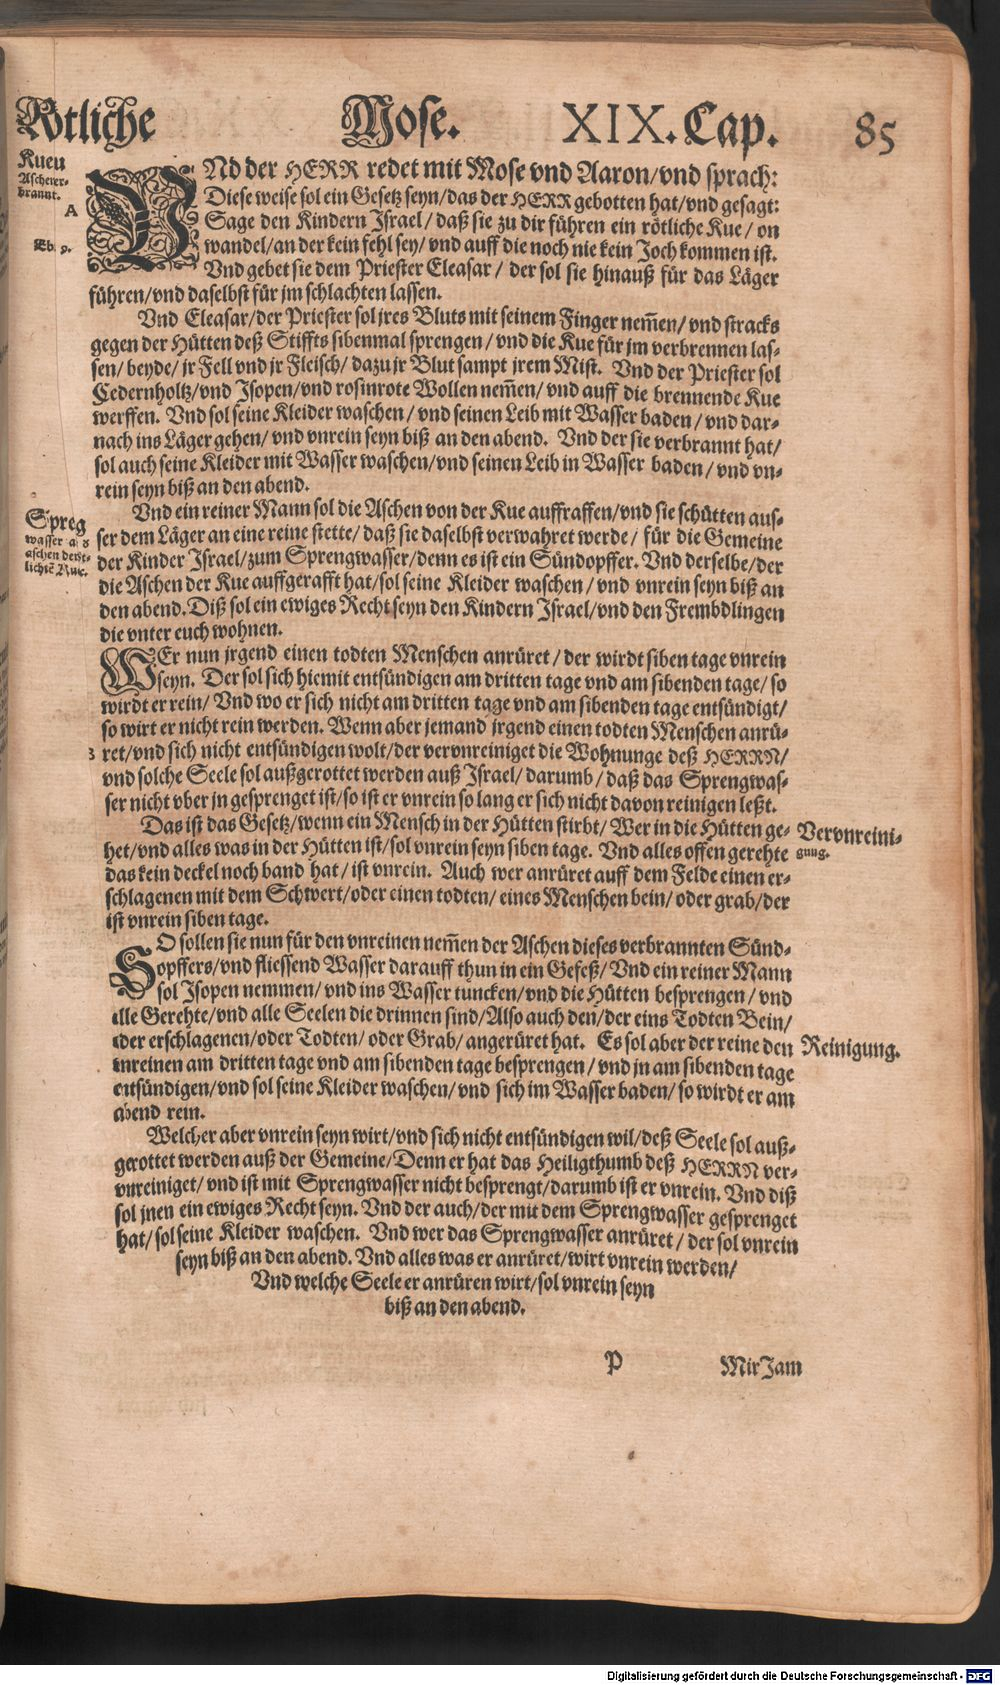 Rötliche Mose. XIX. Cap. 85
Kueu
Aschever-
brannt.
A
Eb. 9.
VNd der HERR redet mit Mose vnd Aaron/vnd sprach:
Diese weise sol ein Gesetz seyn/das der HERR gebotten hat/vnd gesagt:
Sage den Kindern Israel/daß sie zu dir führen ein rötliche Kue/on
wandel/an der kein fehl sey/vnd auff die noch nie kein Joch kommen ist.
Vnd gebet sie dem Priester Eleasar/der sol sie hinauß für das Läger
führen/vnd daselbst für jm schlachten lassen.
Vnd Eleasar/der Priester sol jres Bluts mit seinem Finger nem̃en/vnd stracks
gegen der Hütten deß Stiffts sibenmal sprengen/vnd die Kue für jm verbrennen las-
sen/beyde/jr Fell vnd jr Fleisch/dazu jr Blut sampt jrem Mist. Vnd der Priester sol
Cedernholtz/vnd Isopen/vnd rosinrote Wollen nem̃en/vnd auff die brennende Kue
werffen. Vnd sol seine Kleider waschen/vnd seinen Leib mit Wasser baden/vnd dar-
nach ins Läger gehen/vnd vnrein seyn biß an den abend. Vnd der sie verbrannt hat/
sol auch seine Kleider mit Wasser waschen/vnd seinen Leib in Wasser baden/vnd vn-
rein seyn biß an den abend.
Spreg
wasser aus
aschen der röt-
lichē Kue.
Vnd ein reiner Mann sol die Aschen von der Kue auffraffen/vnd sie schütten aus-
ser dem Läger an eine reine stette/daß sie daselbst verwahret werde/für die Gemeine
der Kinder Israel/zum Sprengwasser/denn es ist ein Sündopffer. Vnd derselbe/der
die Aschen der Kue auffgerafft hat/sol seine Kleider waschen/vnd vnrein seyn biß an
den abend. Diß sol ein ewiges Recht seyn den Kindern Israel/vnd den Frembdlingen
die vnter euch wohnen.
WEr nun jrgend einen todten Menschen anrüret/der wirdt siben tage vnrein
seyn. Der sol sich hiemit entsündigen am dritten tage vnd am sibenden tage/so
wirdt er rein/Vnd wo er sich nicht am dritten tage vnd am sibenden tage entsündigt/
so wirt er nicht rein werden. Wenn aber jemand jrgend einen todten Menschen anrü-
B ret/vnd sich nicht entsündigen wolt/der verunreiniget die Wohnunge deß HERRN/
vnd solche Seele sol außgerottet werden auß Israel/darumb/daß das Sprengwas-
ser nicht vber jn gesprenget ist/so ist er vnrein so lang er sich nicht davon reinigen leßt.
Das ist das Gesetz/wenn ein Mensch in der Hütten stirbt/Wer in die Hütten ge-
het/vnd alles was in der Hütten ist/sol vnrein seyn siben tage. Vnd alles offen gerehte
das kein deckel noch band hat/ist vnrein. Auch wer anrüret auff dem Felde einen er-
schlagenen mit dem Schwert/oder einen todten/eines Menschen bein/oder grab/der
ist vnrein siben tage.
Vervnreini-
gung.
SO sollen sie nun für den vnreinen nem̃en der Aschen dieses verbrannten Sünd-
opffers/vnd fliessend Wasser darauff thun in ein Gefeß/Vnd ein reiner Mann
sol Isopen nemmen/vnd ins Wasser tuncken/vnd die Hütten besprengen/vnd
alle Gerehte/vnd alle Seelen die drinnen sind/Also auch den/der eins Todten Bein/
oder erschlagenen/oder Todten/oder Grab/angerüret hat. Es sol aber der reine den
vnreinen am dritten tage vnd am sibenden tage besprengen/vnd jn am sibenden tage
entsündigen/vnd sol seine Kleider waschen/vnd sich im Wasser baden/so wirdt er am
abend rein.
Reinigung.
Welcher aber vnrein seyn wirt/vnd sich nicht entsündigen wil/deß Seele sol auß-
gerottet werden auß der Gemeine/Denn er hat das Heiligthumb deß HERRN ver-
vnreiniget/vnd ist mit Sprengwasser nicht besprengt/darumb ist er vnrein. Vnd diß
sol jnen ein ewiges Recht seyn. Vnd der auch/der mit dem Sprengwasser gesprenget
hat/sol seine Kleider waschen. Vnd wer das Sprengwasser anrüret/der sol vnrein
seyn biß an den abend. Vnd alles was er anrüret/wirt vnrein werden/
Vnd welche Seele er anrüren wirt/sol vnrein seyn
biß an den abend.
P MirJam
Digitalisierung gefördert durch die Deutsche Forschungsgemeinschaft - DFG